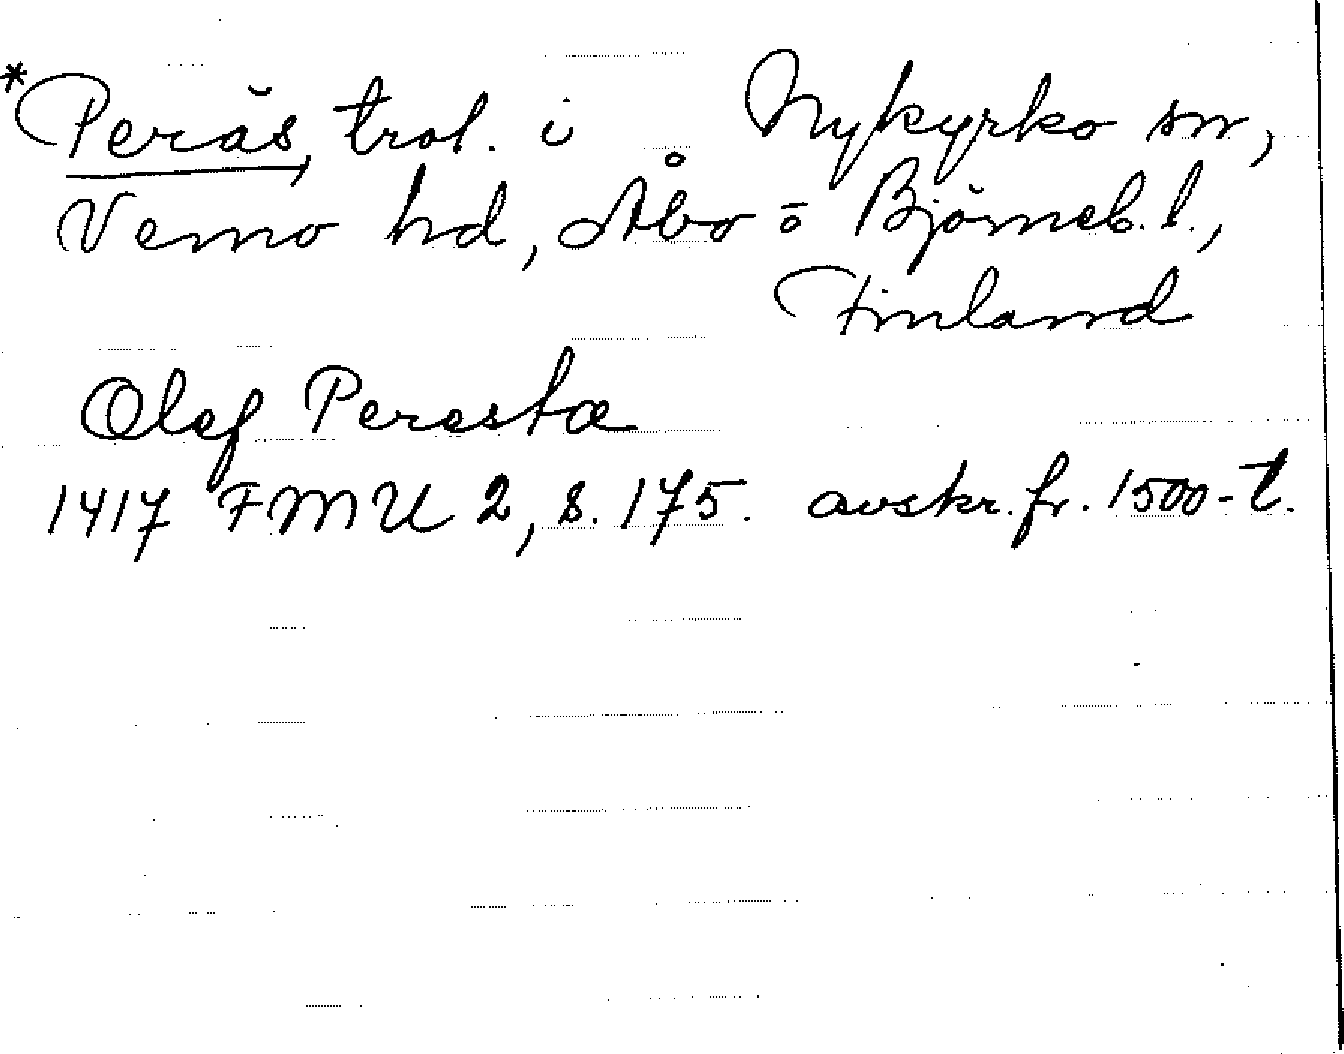 *Peräs, trol. i Nykyrko sn,
Vemo hd, Åbo o Björneb. l.,
Finland
Olef Perestæ
1417 FMU 2, s. 175. avskr. fr. 1500-t.